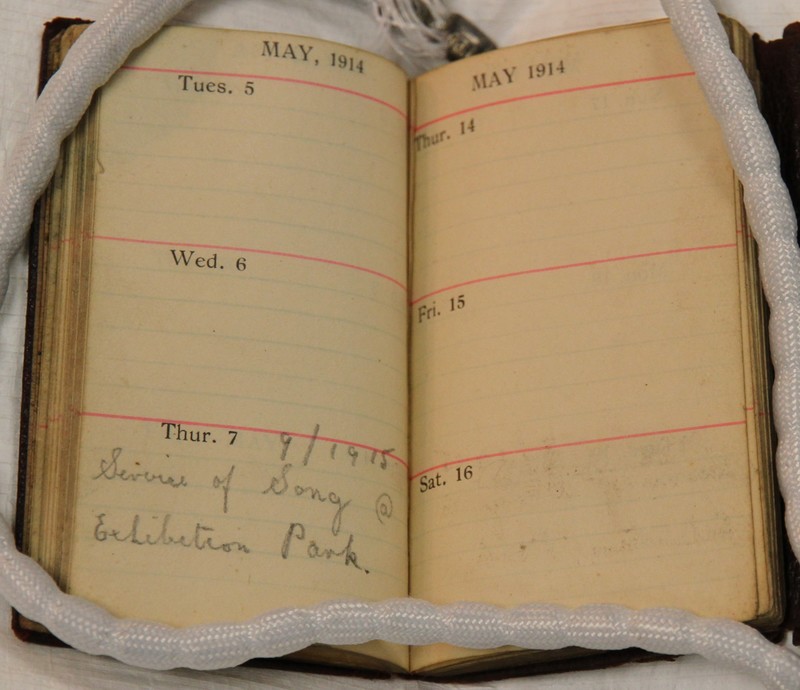 MAY, 1914
Tues. 5
Wed. 6
Thur. 7 9/1915
Service of Song @
Exhibition Park.
MAY 1914
Thur. 14
Fri. 15
Sat. 16